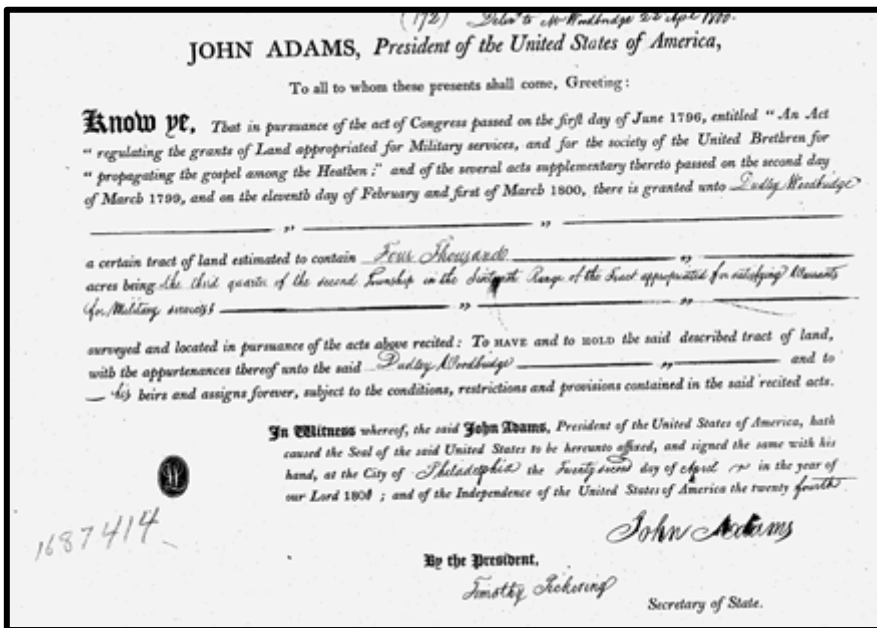 (172) Deliv'd to Mr Woodbridge 22 Apl 1800.
JOHN ADAMS, President of the United States of America,
To all to whom these presents shall come, Greeting:
Know ye, That in pursuance of the act of Congress passed on the first day of June 1796, entitled "An Act
" regulating the grants of Land appropriated for Military services, and for the society of the United Brethren for
" propagating the gospel among the Heathen;" and of the several acts supplementary thereto passed on the second day
of March 1799, and on the eleventh day of February and first of March 1800, there is granted unto Dudley Woodbridge
a certain tract of land estimated to contain Four Thousand
acres being the third quarter of the second Township in the Range of the Tract appropriated for satisfying Warrants
for Military services
surveyed and located in pursuance of the acts above recited: To HAVE and to HOLD the said described tract of land,
with the appurtenances thereof unto the said Dudley Woodbridge and to
his heirs and assigns forever, subject to the conditions, restrictions and provisions contained in the said recited acts.
In Witness whereof, the said John Adams, President of the United States of America, hath
caused the Seal of the said United States to be hereunto affixed, and signed the same with his
hand, at the City of Philadelphia the Twenty second day of April in the year of
our Lord 1800 ; and of the Independence of the United States of America the twenty fourth
John Adams
1687414
By the President,
Timothy Pickering
Secretary of State.